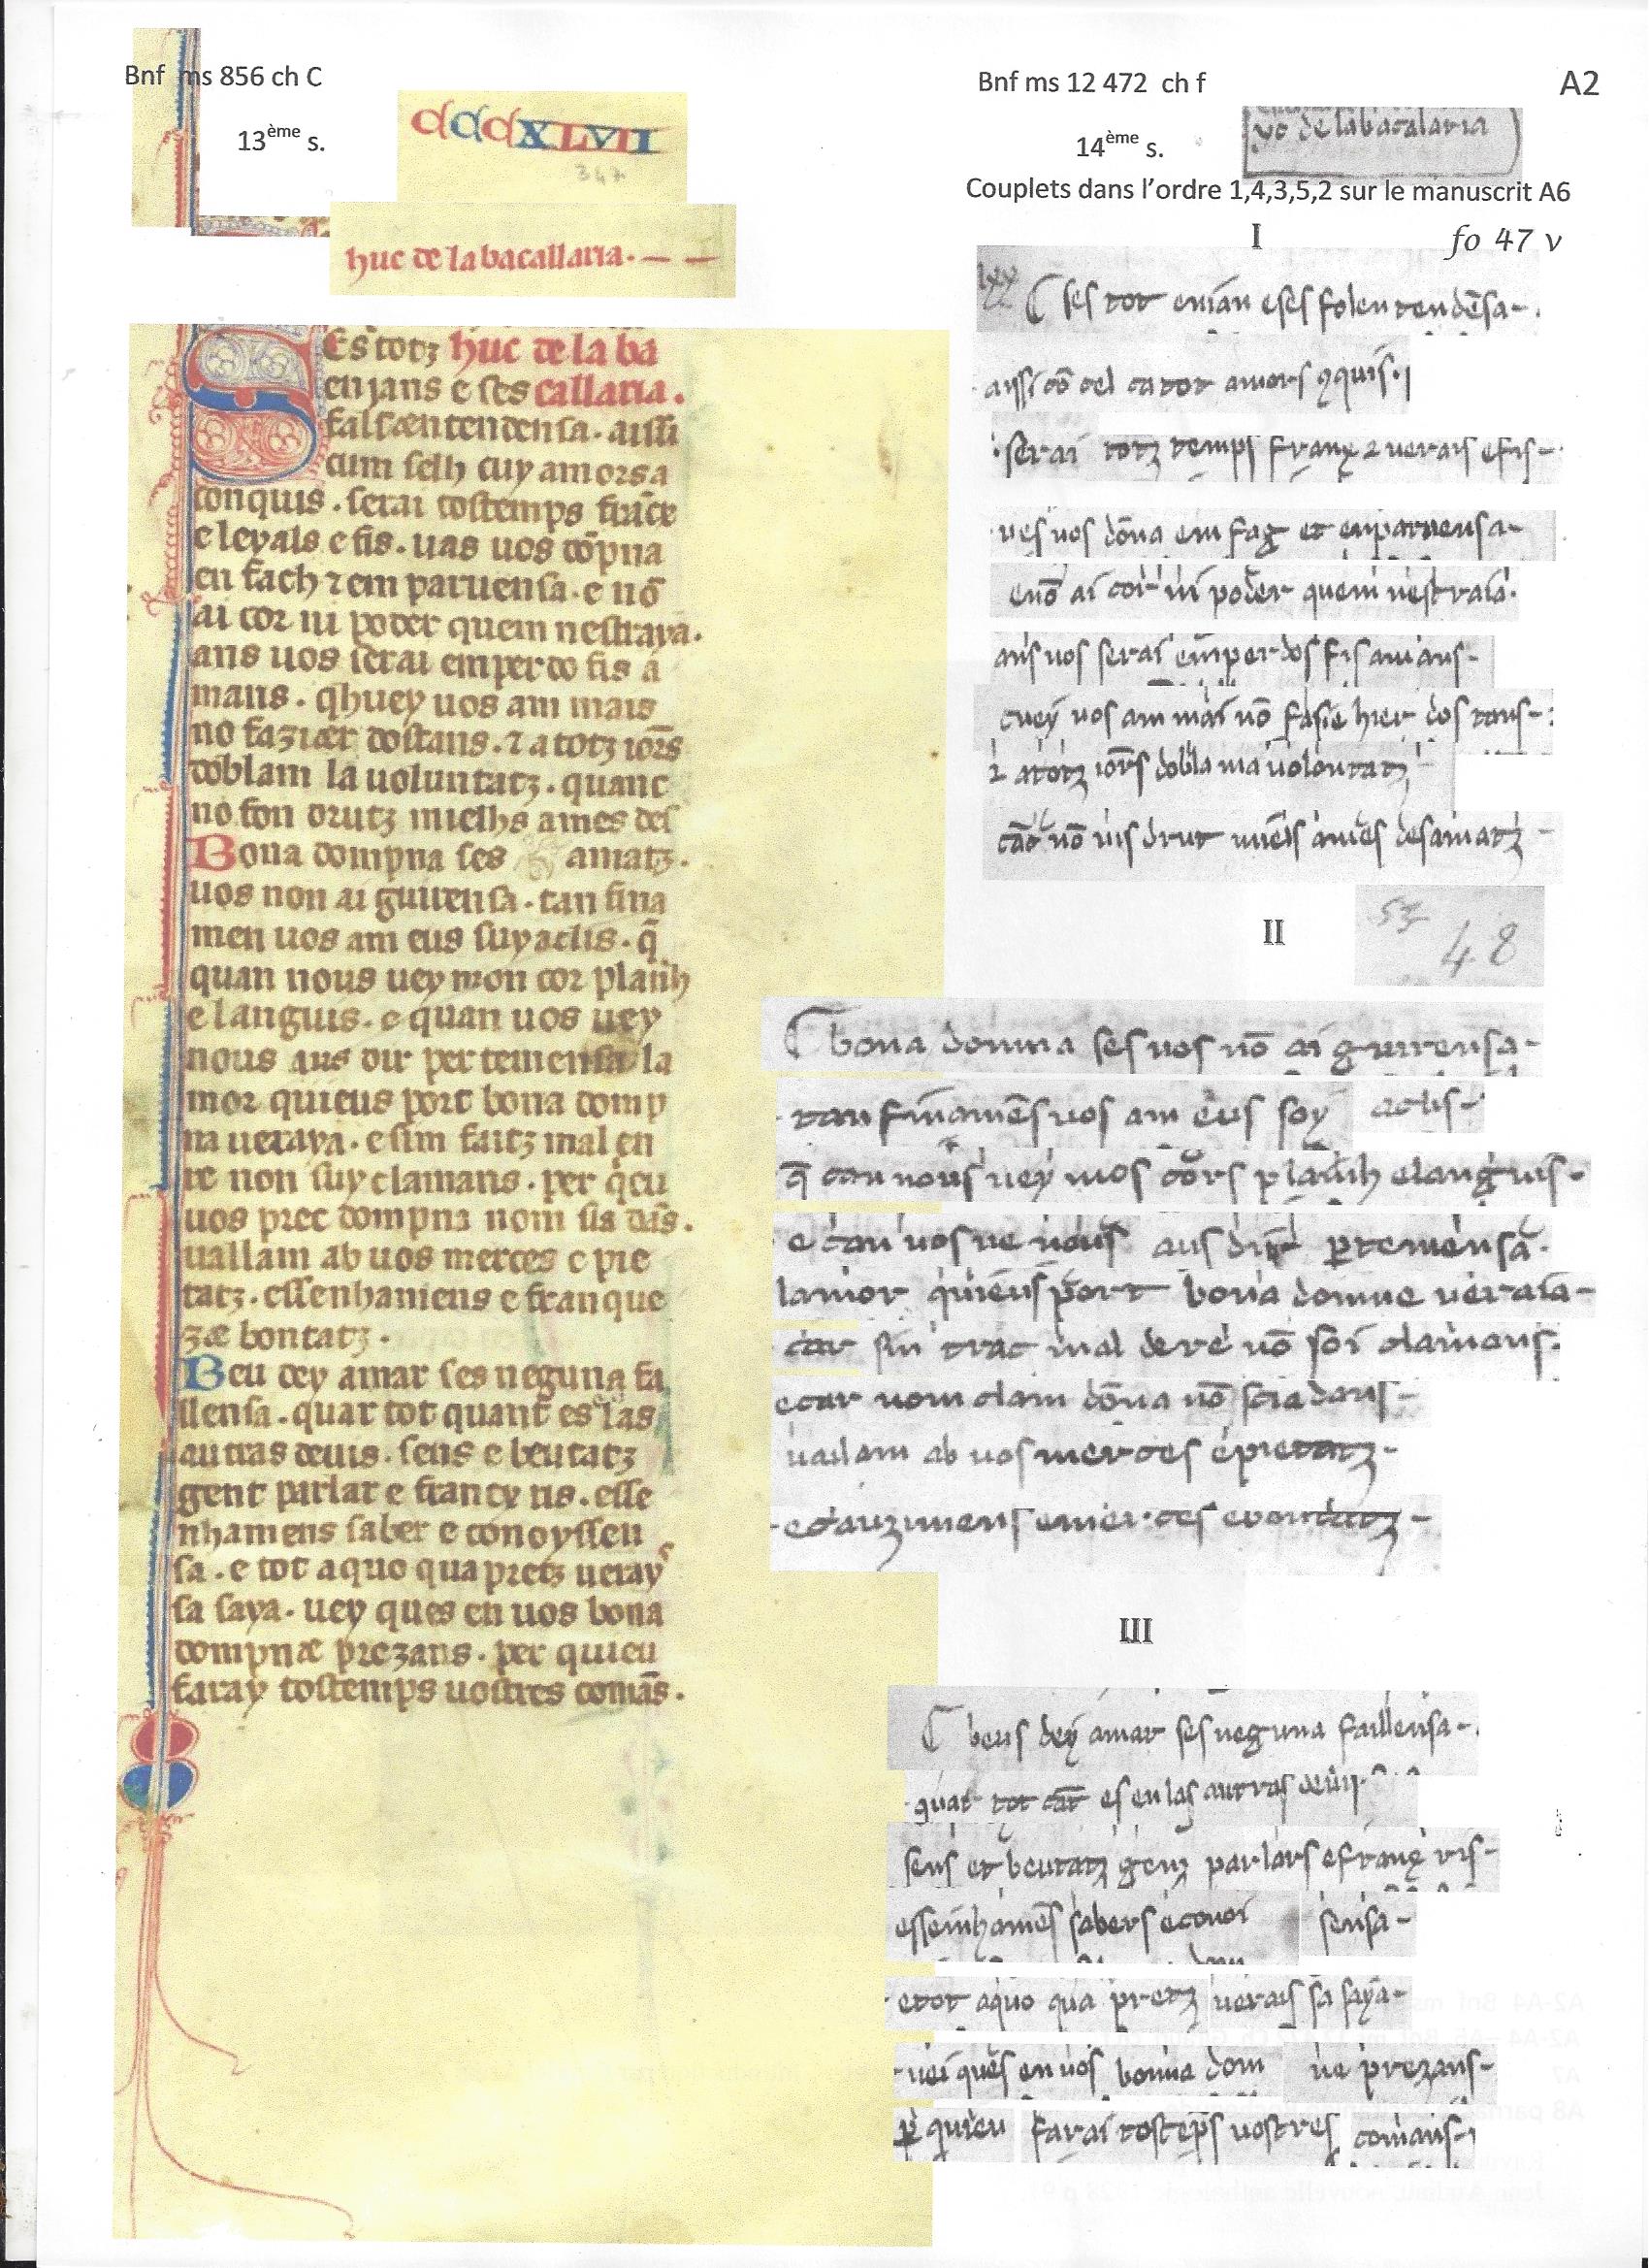 Bnf ms 856 ch C
13ème s.
cccXLVII
347
huc de la bacallaria.
SEs totz huc de la ba
enjans e ses callaria.
falsa entendensa. aissi
cum selh cuy amors a
conquis. serai tostemps francx
e leyals e fis. uas uos dōpna
en fach ⁊ em paruensa. e nō
ai cor ni poder quem nestraya.
ans uos serai emperdo fis a
mans. qhuey uos am mais
no fazia er dos tans. ⁊ a totz iors
doblam la uoluntatz. quanc
no fon drutz mielhs ames des
Bona dompna ses amatz.
uos non ai guirensa. tan fina
men uos am eus suy aclis. q̄
quan nous uey mon cor planh
e languis. e quan uos uey
nous aus dir per temensa la
mor quieus port bona domp
na ueraya. e sim faitz mal en
re non suy clamans. per q̄eu
uos prec dompna nom sia dās.
uallam ab uos merces e pie
tatz. essenhamens e franque
za e bontatz.
Beu dey amar ses neguna fa
llensa. quar tot quant es e las
autras deuis. sens e beutatz
gent parlar e francx ris. esse
nhamens saber e conoyssen
sa. e tot aquo qua pretz ueray
sa saya. uey ques en uos bona
dompna e prezans. per quieu
faray tostemps uostres comās.
Bnf ms 12 472 ch f
A2
14ème s.
uc de labacalaria
Couplets dans l’ordre 1,4,3,5,2 sur le manuscrit A6
I
fo 47 v
lxx
ses tot enian eses fol entendēsa
aissi cō cel ca tot amors ꝯquis
serai totz temps franx ⁊ uerais e fis
ues uos dōna em fag et en paruensa
e nō ai cor ni poder quem nestraia
ans uos serai emperdos fis amans
cuey uos am mai nō fasie hier dos tans
⁊ a totz iors dobla ma uolontatz
cāt nō uis drut mieis ames desamatz
II
48
bona domna ses uos nō ai guirensa
tan finamēs uos am eus soy aclis
q̄ can nous uey mos cors planh e languis
e can uos ue nous aus dir ꝑ temensa
lamor quieus port bona domne ueraia
car sin trac mal de re nō soi clamans
e car nom clam dōna nō scia dans
uailam ab uos merces e pietatz
e cauzimens e merces e bontatz
III
beus dey amar ses neguna faillensa
quar tot cāt es en las autras deuis
sens et beutatz genz parlars e franx ris
esseinhamēs sabers e conoi sensa
e tot aquo qua pretz uerais sa saya
uei ques en uos bonna dom ne prezans
ꝑ quieu farai tostēps uostres comans